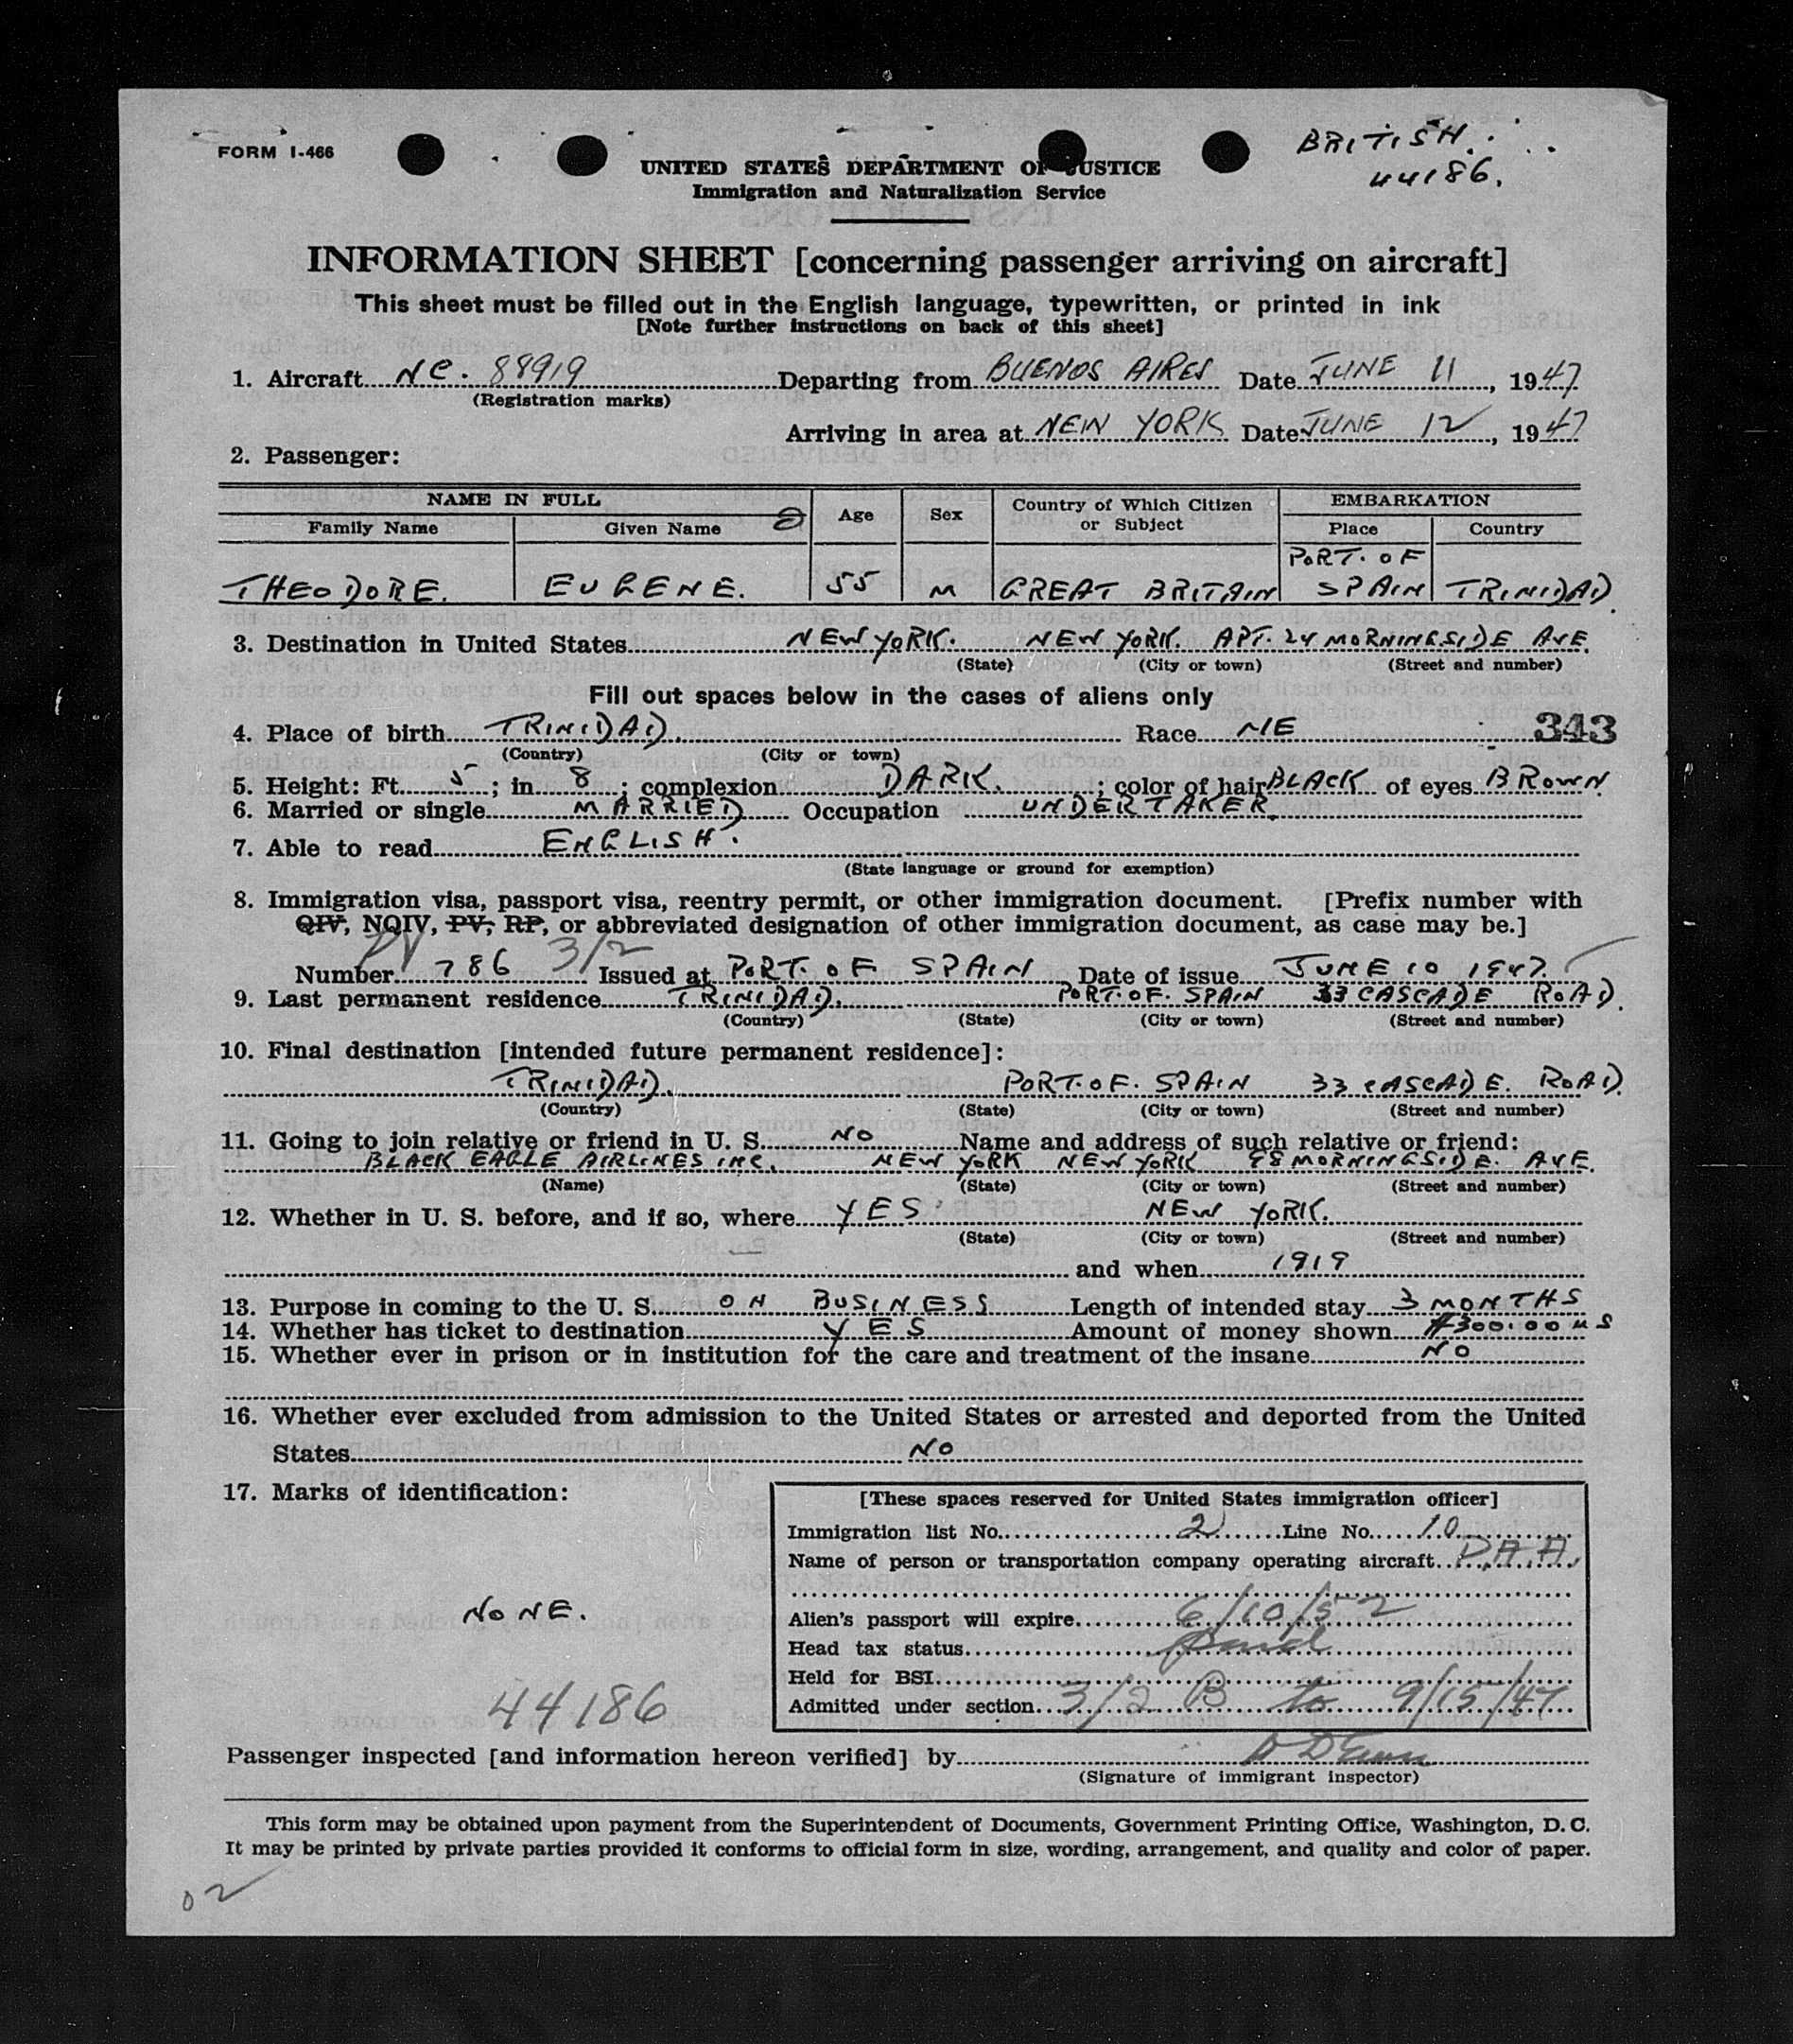 FORM I-466
BRITISH.
44186.
UNITED STATES DEPARTMENT OF JUSTICE
Immigration and Naturalization Service
INFORMATION SHEET [concerning passenger arriving on aircraft]
This sheet must be filled out in the English language, typewritten, or printed in ink
[Note further instructions on back of this sheet]
1. Aircraft NC. 88919 Departing from BUENOS AIRES Date JUNE 11, 1947
(Registration marks)
Arriving in area at NEW YORK Date JUNE 12, 1947
2. Passenger:
NAME IN FULL Age Sex Country of Which Citizen or Subject EMBARKATION
Family Name Given Name Place Country
PORT. OF
THEODORE. EUGENE. 55 M GREAT BRITAIN SPAIN TRINIDAD.
3. Destination in United States NEW YORK. NEW YORK. APT. 24 MORNINGSIDE AVE.
(State) (City or town) (Street and number)
Fill out spaces below in the cases of aliens only
4. Place of birth TRINIDAD. Race NE 343
(Country) (City or town)
5. Height: Ft. 5; in 8; complexion DARK.; color of hair BLACK of eyes BROWN.
6. Married or single MARRIED Occupation UNDERTAKER.
7. Able to read ENGLISH.
(State language or ground for exemption)
8. Immigration visa, passport visa, reentry permit, or other immigration document. [Prefix number with
QIV, NQIV, PV, RP, or abbreviated designation of other immigration document, as case may be.]
Number PV 786 3/2 Issued at PORT. OF SPAIN Date of issue JUNE 10 1947.
9. Last permanent residence TRINIDAD. PORT. OF. SPAIN 33 CASCADE ROAD.
(Country) (State) (City or town) (Street and number)
10. Final destination [intended future permanent residence]:
TRINIDAD. PORT. OF. SPAIN 33 CASCADE. ROAD.
(Country) (State) (City or town) (Street and number)
11. Going to join relative or friend in U. S. NO Name and address of such relative or friend:
BLACK EAGLE AIRLINES INC. NEW YORK NEW YORK 98 MORNINGSIDE. AVE.
(Name) (State) (City or town) (Street and number)
12. Whether in U. S. before, and if so, where YES NEW YORK.
(State) (City or town) (Street and number)
and when 1919
13. Purpose in coming to the U. S. ON BUSINESS Length of intended stay 3 MONTHS
14. Whether has ticket to destination YES Amount of money shown $300.00 US
15. Whether ever in prison or in institution for the care and treatment of the insane NO
16. Whether ever excluded from admission to the United States or arrested and deported from the United
States NO
17. Marks of identification:
NONE.
44186
[These spaces reserved for United States immigration officer]
Immigration list No. 2 Line No. 10
Name of person or transportation company operating aircraft P.A.A.
Alien's passport will expire 6/10/52
Head tax status
Held for BSI
Admitted under section 3/2 B to 9/15/47
Passenger inspected [and information hereon verified] by
(Signature of immigrant inspector)
This form may be obtained upon payment from the Superintendent of Documents, Government Printing Office, Washington, D. C.
It may be printed by private parties provided it conforms to official form in size, wording, arrangement, and quality and color of paper.
02